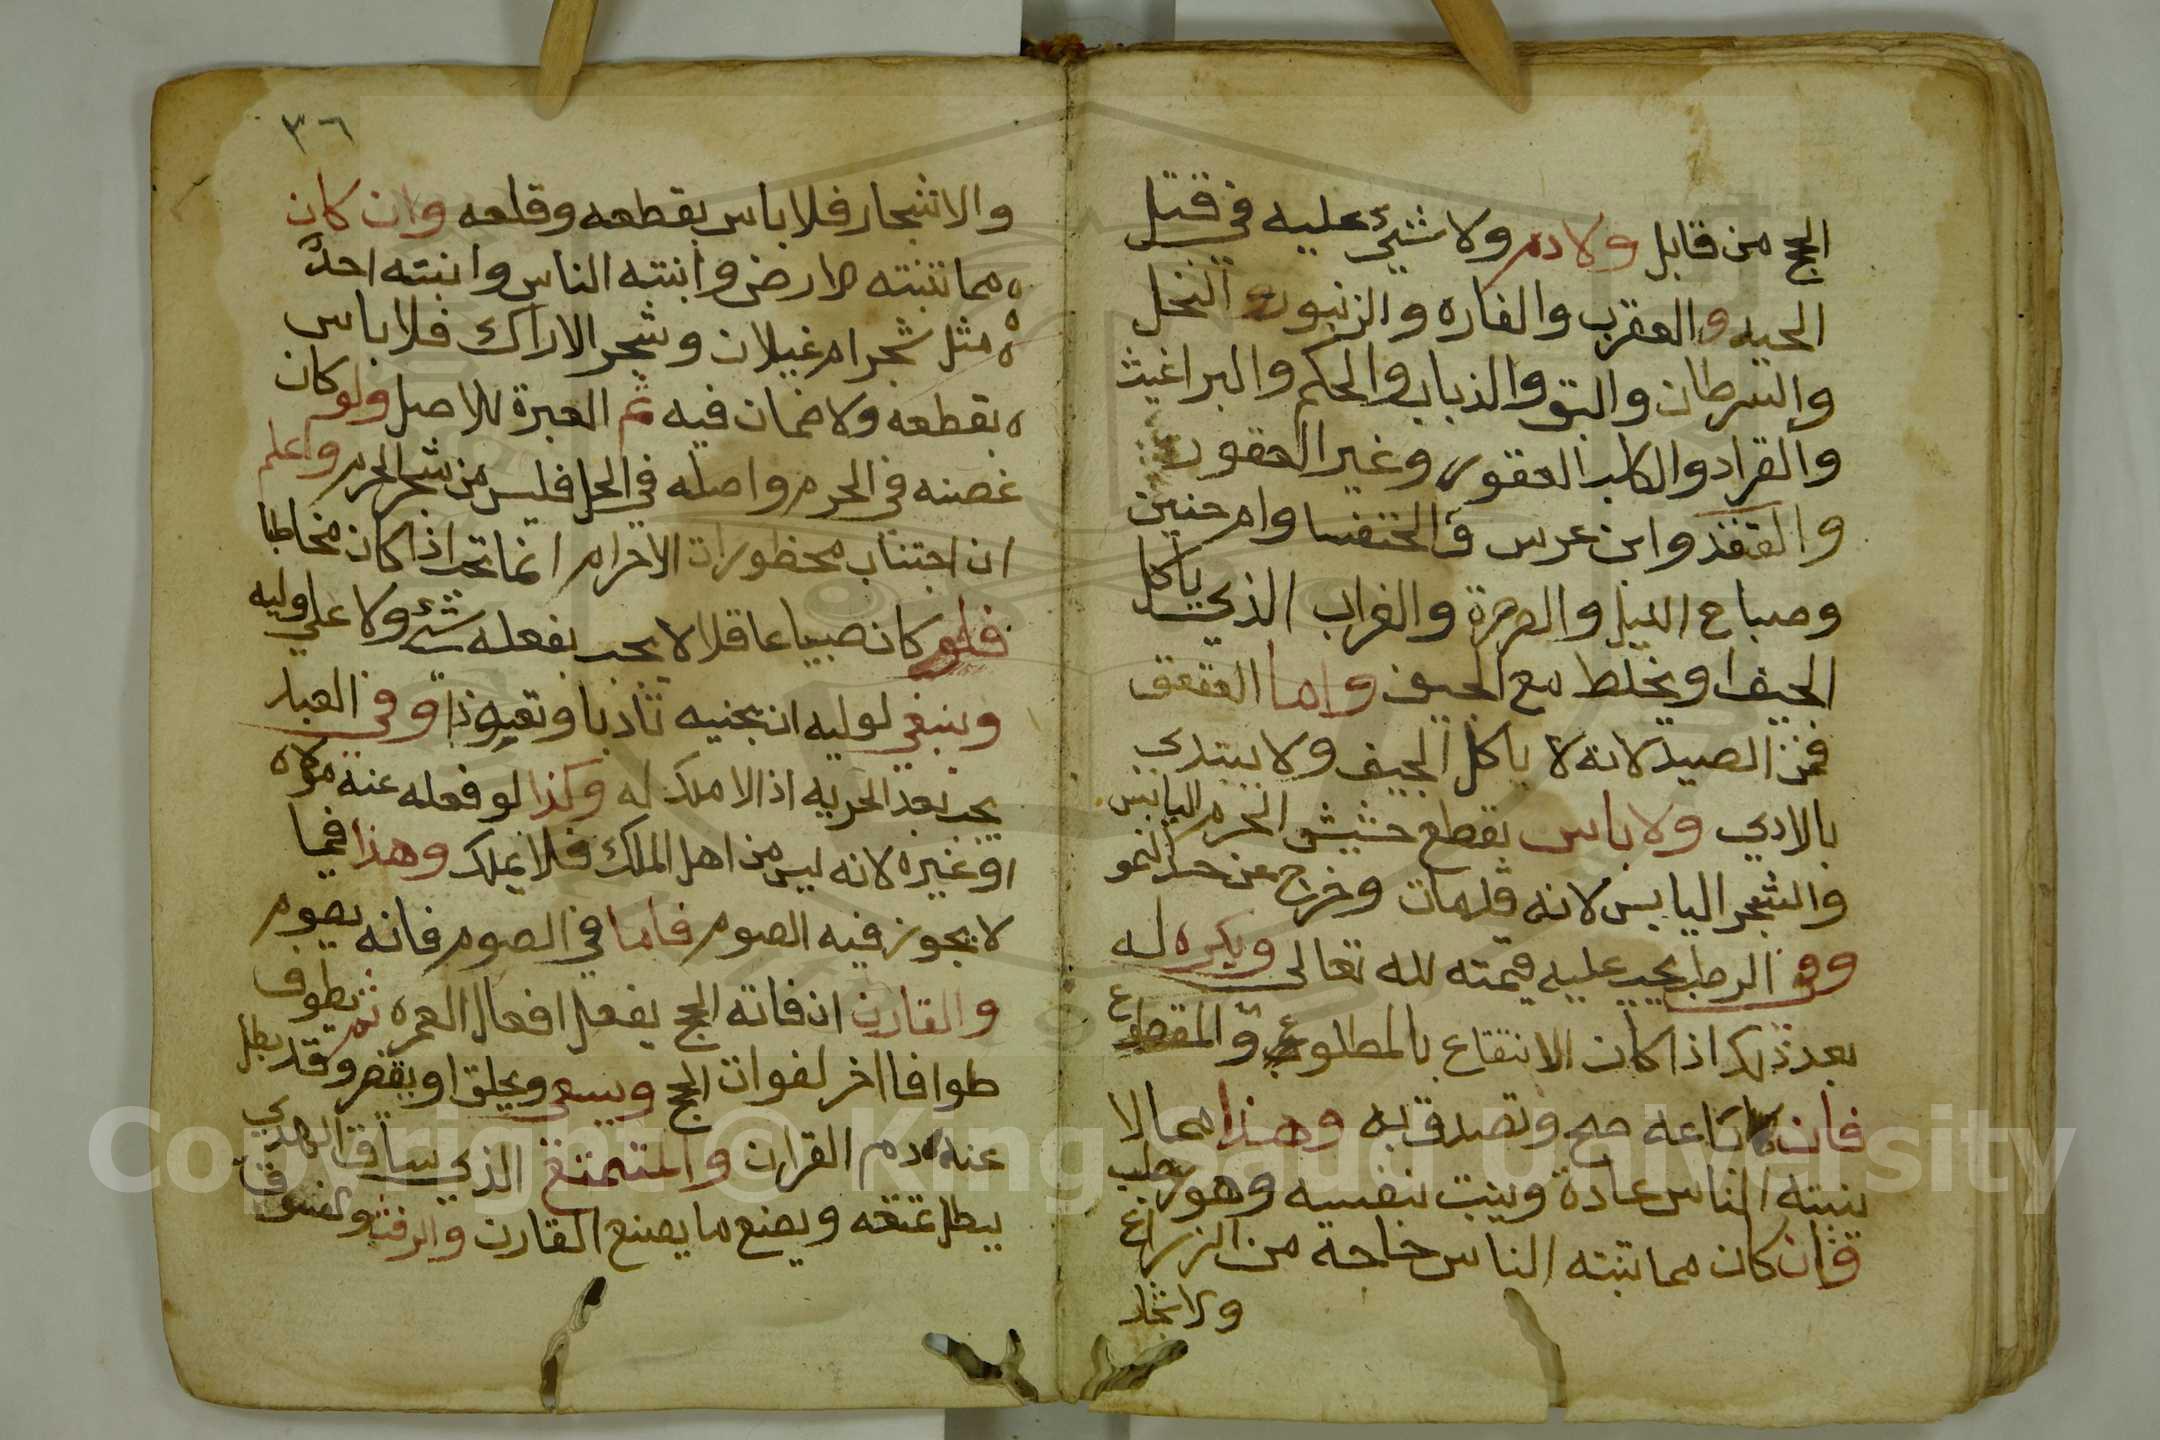 الحج من قابل ولا دم ولا شيء عليه في قتل
الحيه والعقرب والفاره والزنبور والنحل
والسرطان والبق والذباب والحلم والبراغيث
والقراد والكلب العقور وغير العقور
والقنفذ وابن عرس والخنفسا وام حنين
وصباع الليل والصرصرة والغراب الذي ياكل
الجيف او يخلط مع الجيف واما العقعق
فمن الصيد لانه لا ياكل الجيف ولا يبتدي
بالادي ولا باس بقطع حشيش الحرم اليابس
والشجر اليابس لانه قد مات وخرج عن حد النمو
وفي الرطب يجب عليه قيمته لله تعالى ويكره له
بعد ذلك اذا كان الانتفاع بالمطلوع والمقطوع
فان باعه صح وتصدق به وهذا مما لا
ينبته الناس عادة وينبت بنفسه وهو رطب
وان كان مما تنبته الناس خاجه من الزراع
والاشجار
٣٦
والاشجار فلا باس بقطعه وقلعه وان كان
مما تنبته الارض وانبته الناس وانبته احد
مثل شجر ام غيلان وشجر الاراك فلا باس
بقطعه ولا ضمان فيه ثم العبرة للاصل ولو كان
غصنه في الحرم واصله في الحل فليس من شجر الحرم واعلم
ان اجتناب محظورات الاحرام انما تجب اذا كان مخاطبا
فلو كان صبيا عاقلا لا يجب بفعله شيء ولا على وليه
وينبغي لوليه ان يجنبه تادبا وتعوذا وفي العبد
يجب بعد الحريه اذ لا ملك له وكذا لو فعله عنه مولاه
او غيره لانه ليس من اهل الملك فلا يملك وهذا فيما
لا يجوز فيه الصوم فاما في الصوم فانه يصوم
والقارن ان فاته الحج يفعل افعال العمره ثم يطوف
طوافا اخر لفوات الحج ويسعى ويحلق او يقصر وقد بطل
عنه دم القران والمتمتع الذي ساق الهدي
يبطل تمتعه ويصنع ما يصنع القارن والرفث والفسوق
Copyright © King Saud University